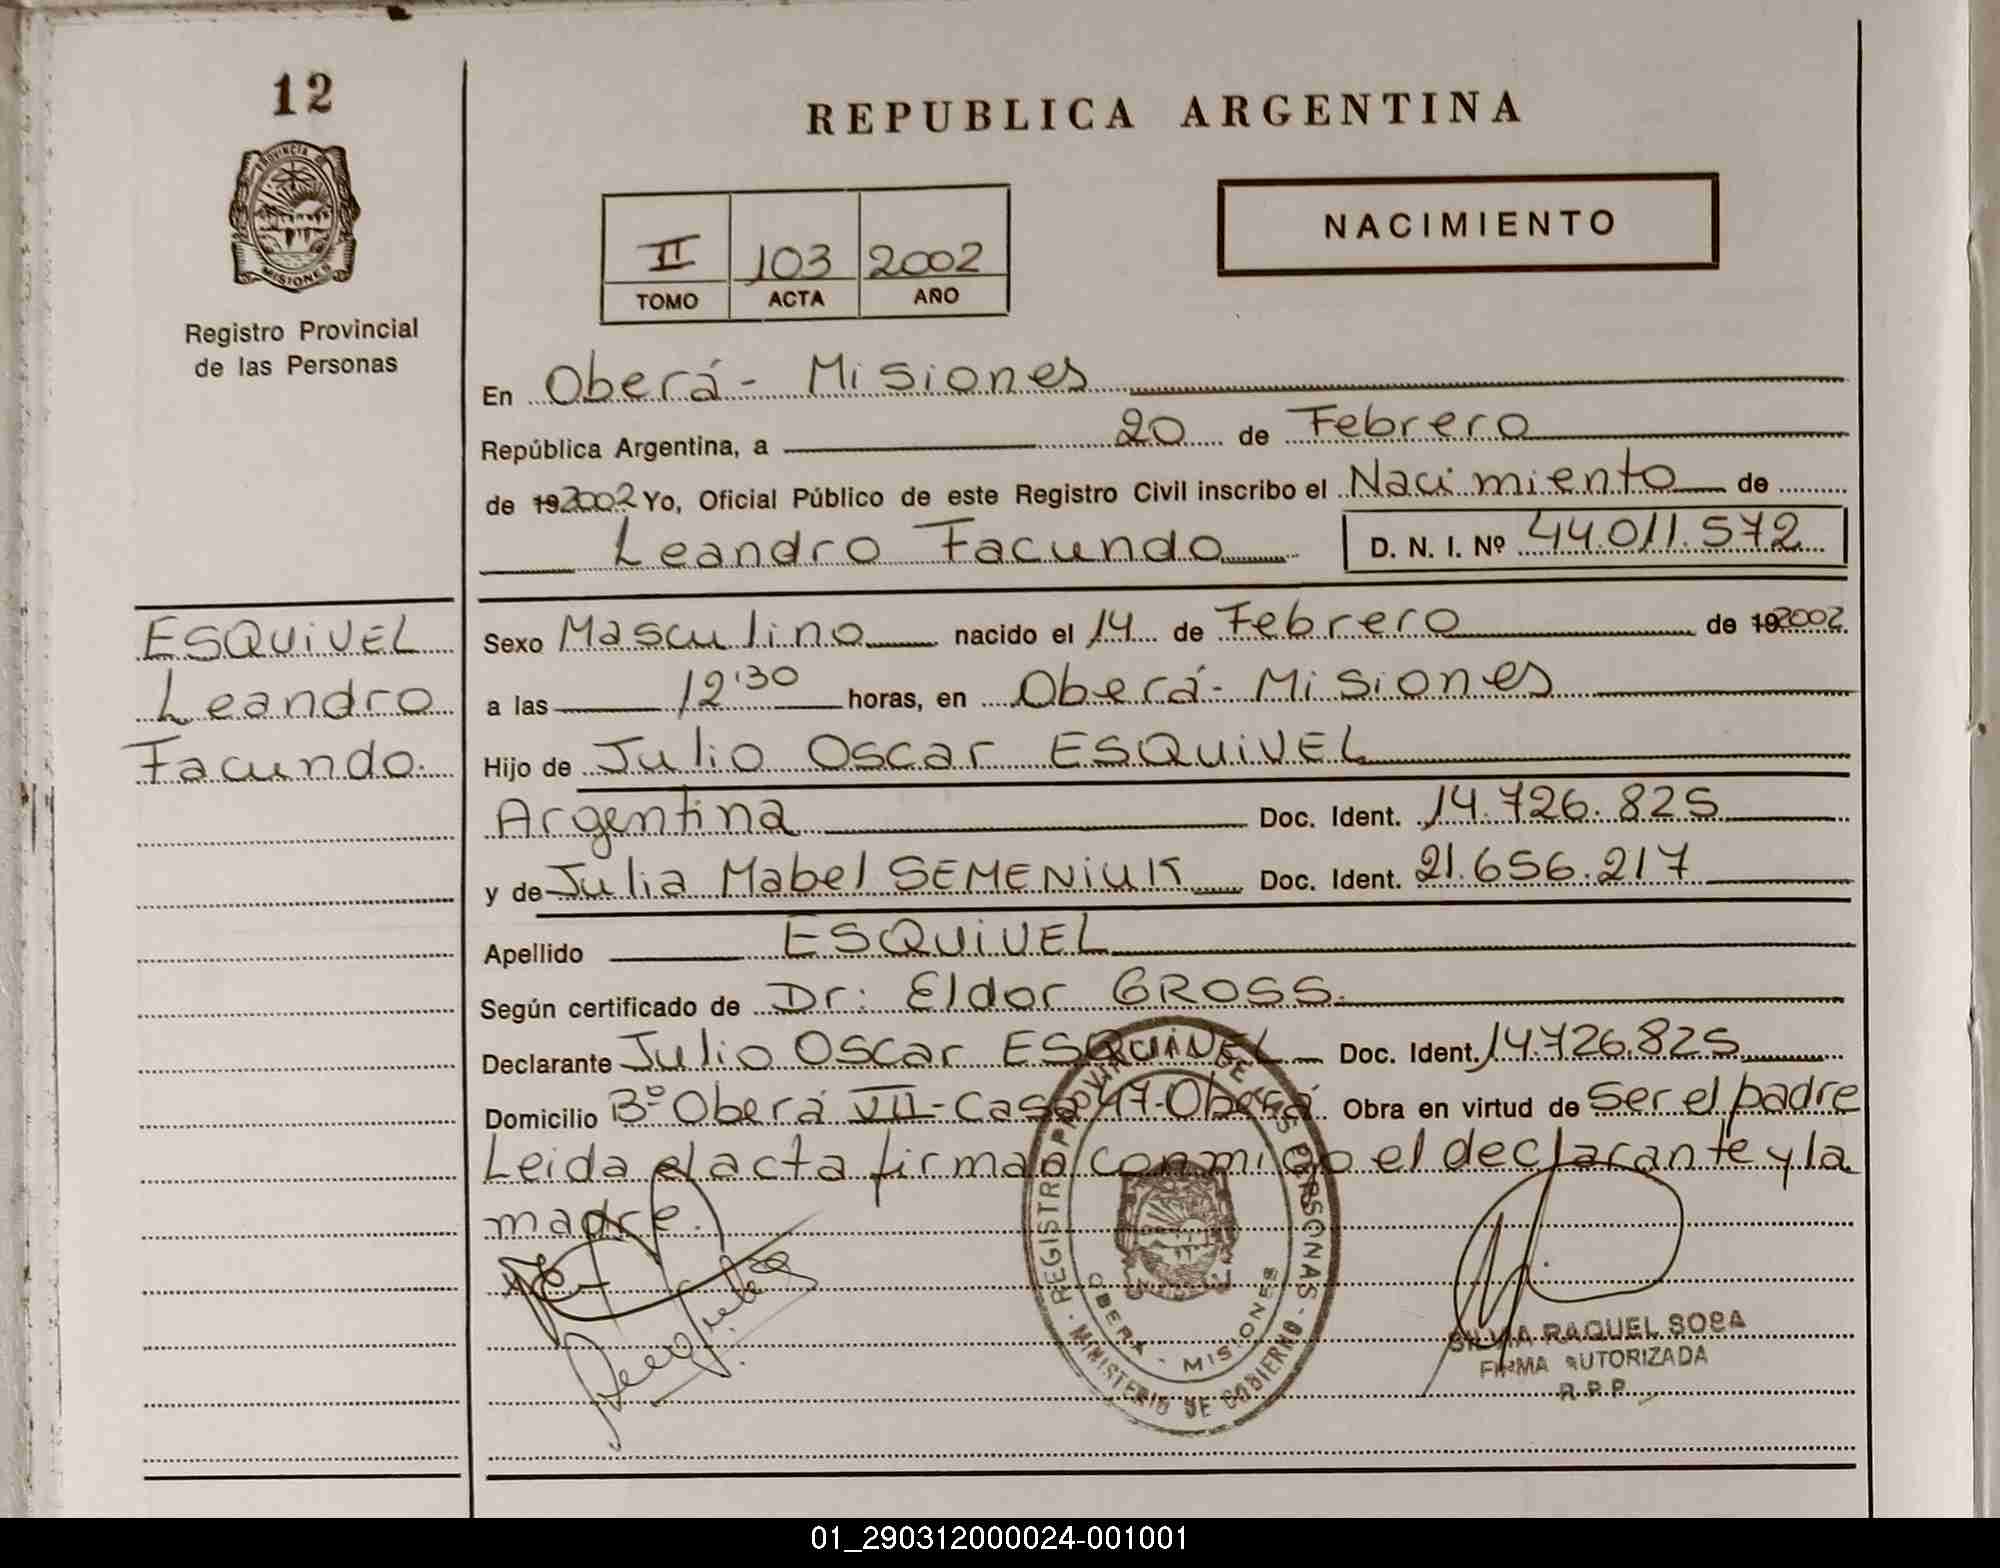 12
PROVINCIA DE
MISIONES
Registro Provincial
de las Personas
REPUBLICA ARGENTINA
II 103 2002
TOMO ACTA AÑO
NACIMIENTO
En Oberá - Misiones
República Argentina, a 20 de Febrero
de 192002 Yo, Oficial Público de este Registro Civil inscribo el Nacimiento de
Leandro Facundo D. N. I. Nº 44.011.572
ESQUIVEL
Leandro
Facundo.
Sexo Masculino nacido el 14 de Febrero de 192002
a las 12'30 horas, en Oberá - Misiones
Hijo de Julio Oscar ESQUIVEL
Argentina Doc. Ident. 14.726.825
y de Julia Mabel SEMENIUK Doc. Ident. 21.656.217
Apellido ESQUIVEL
Según certificado de Dr: Eldor GROSS.
Declarante Julio Oscar ESQUIVEL Doc. Ident. 14.726.825
Domicilio Bº Oberá VII - Casa 47 - Oberá Obra en virtud de ser el padre
Leida el acta firman conmigo el declarante y la
madre.
REGISTRO PROVINCIAL DE LAS PERSONAS - MINISTERIO DE GOBIERNO -
OBERA - MISIONES
SILVIA RAQUEL SOSA
FIRMA AUTORIZADA
R.P.P.
01_290312000024-001001